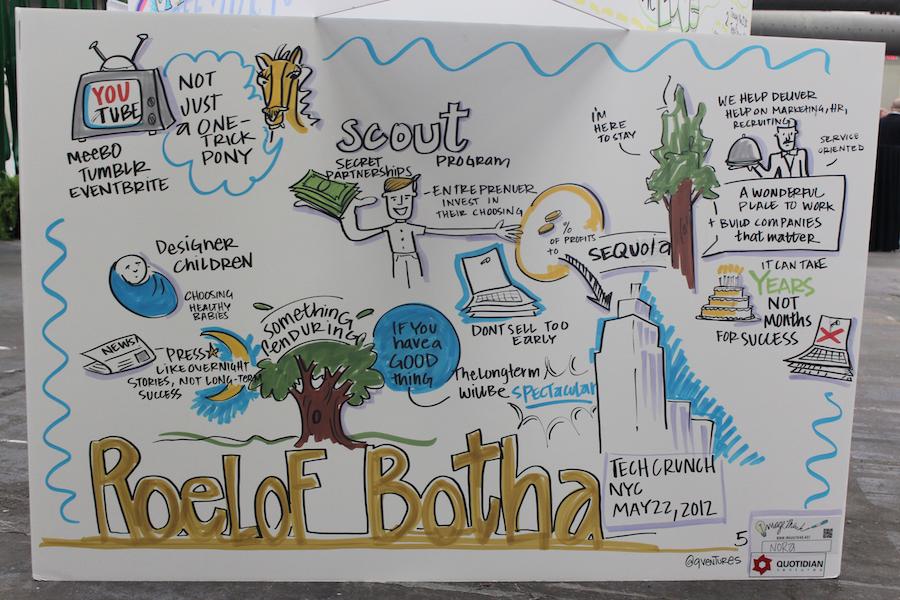 YOU
TUBE
MEEBO
TUMBLR
EVENTBRITE
NOT
JUST
a ONE-
TRICK
PONY
SCOUT
PROGRAM
SECRET
PARTNERSHIPS
-ENTREPRENUER
INVEST IN
THEIR CHOOSING
%
OF PROFITS
TO
SEQUOia
I'M
HERE
TO STAY
WE HELP DELIVER
HELP ON MARKETING, HR,
RECRUITING
SERVICE
ORIENTED
A WONDERFUL
PLACE TO WORK
+ BUILD COMPANIES
that matter
IT CAN TAKE
YEARS
NOT
MONTHS
FOR SUCCESS
DESIGNER
CHILDREN
CHOOSING
HEALTHY
BABIES
NEWS!
PRESS
LIKE OVERNIGHT
STORIES, NOT LONG-TERM
SUCCESS
SOMETHING
ENDURING
IF YOU
have a
GOOD
thing
DONT SELL TOO
EARLY
The long term
will be SPECTacular
ROELOF Botha
TECH CRUNCH
NYC
MAY 22, 2012
5
@qventures
ImageThink
NORA
QUOTIDIAN
VENTURES